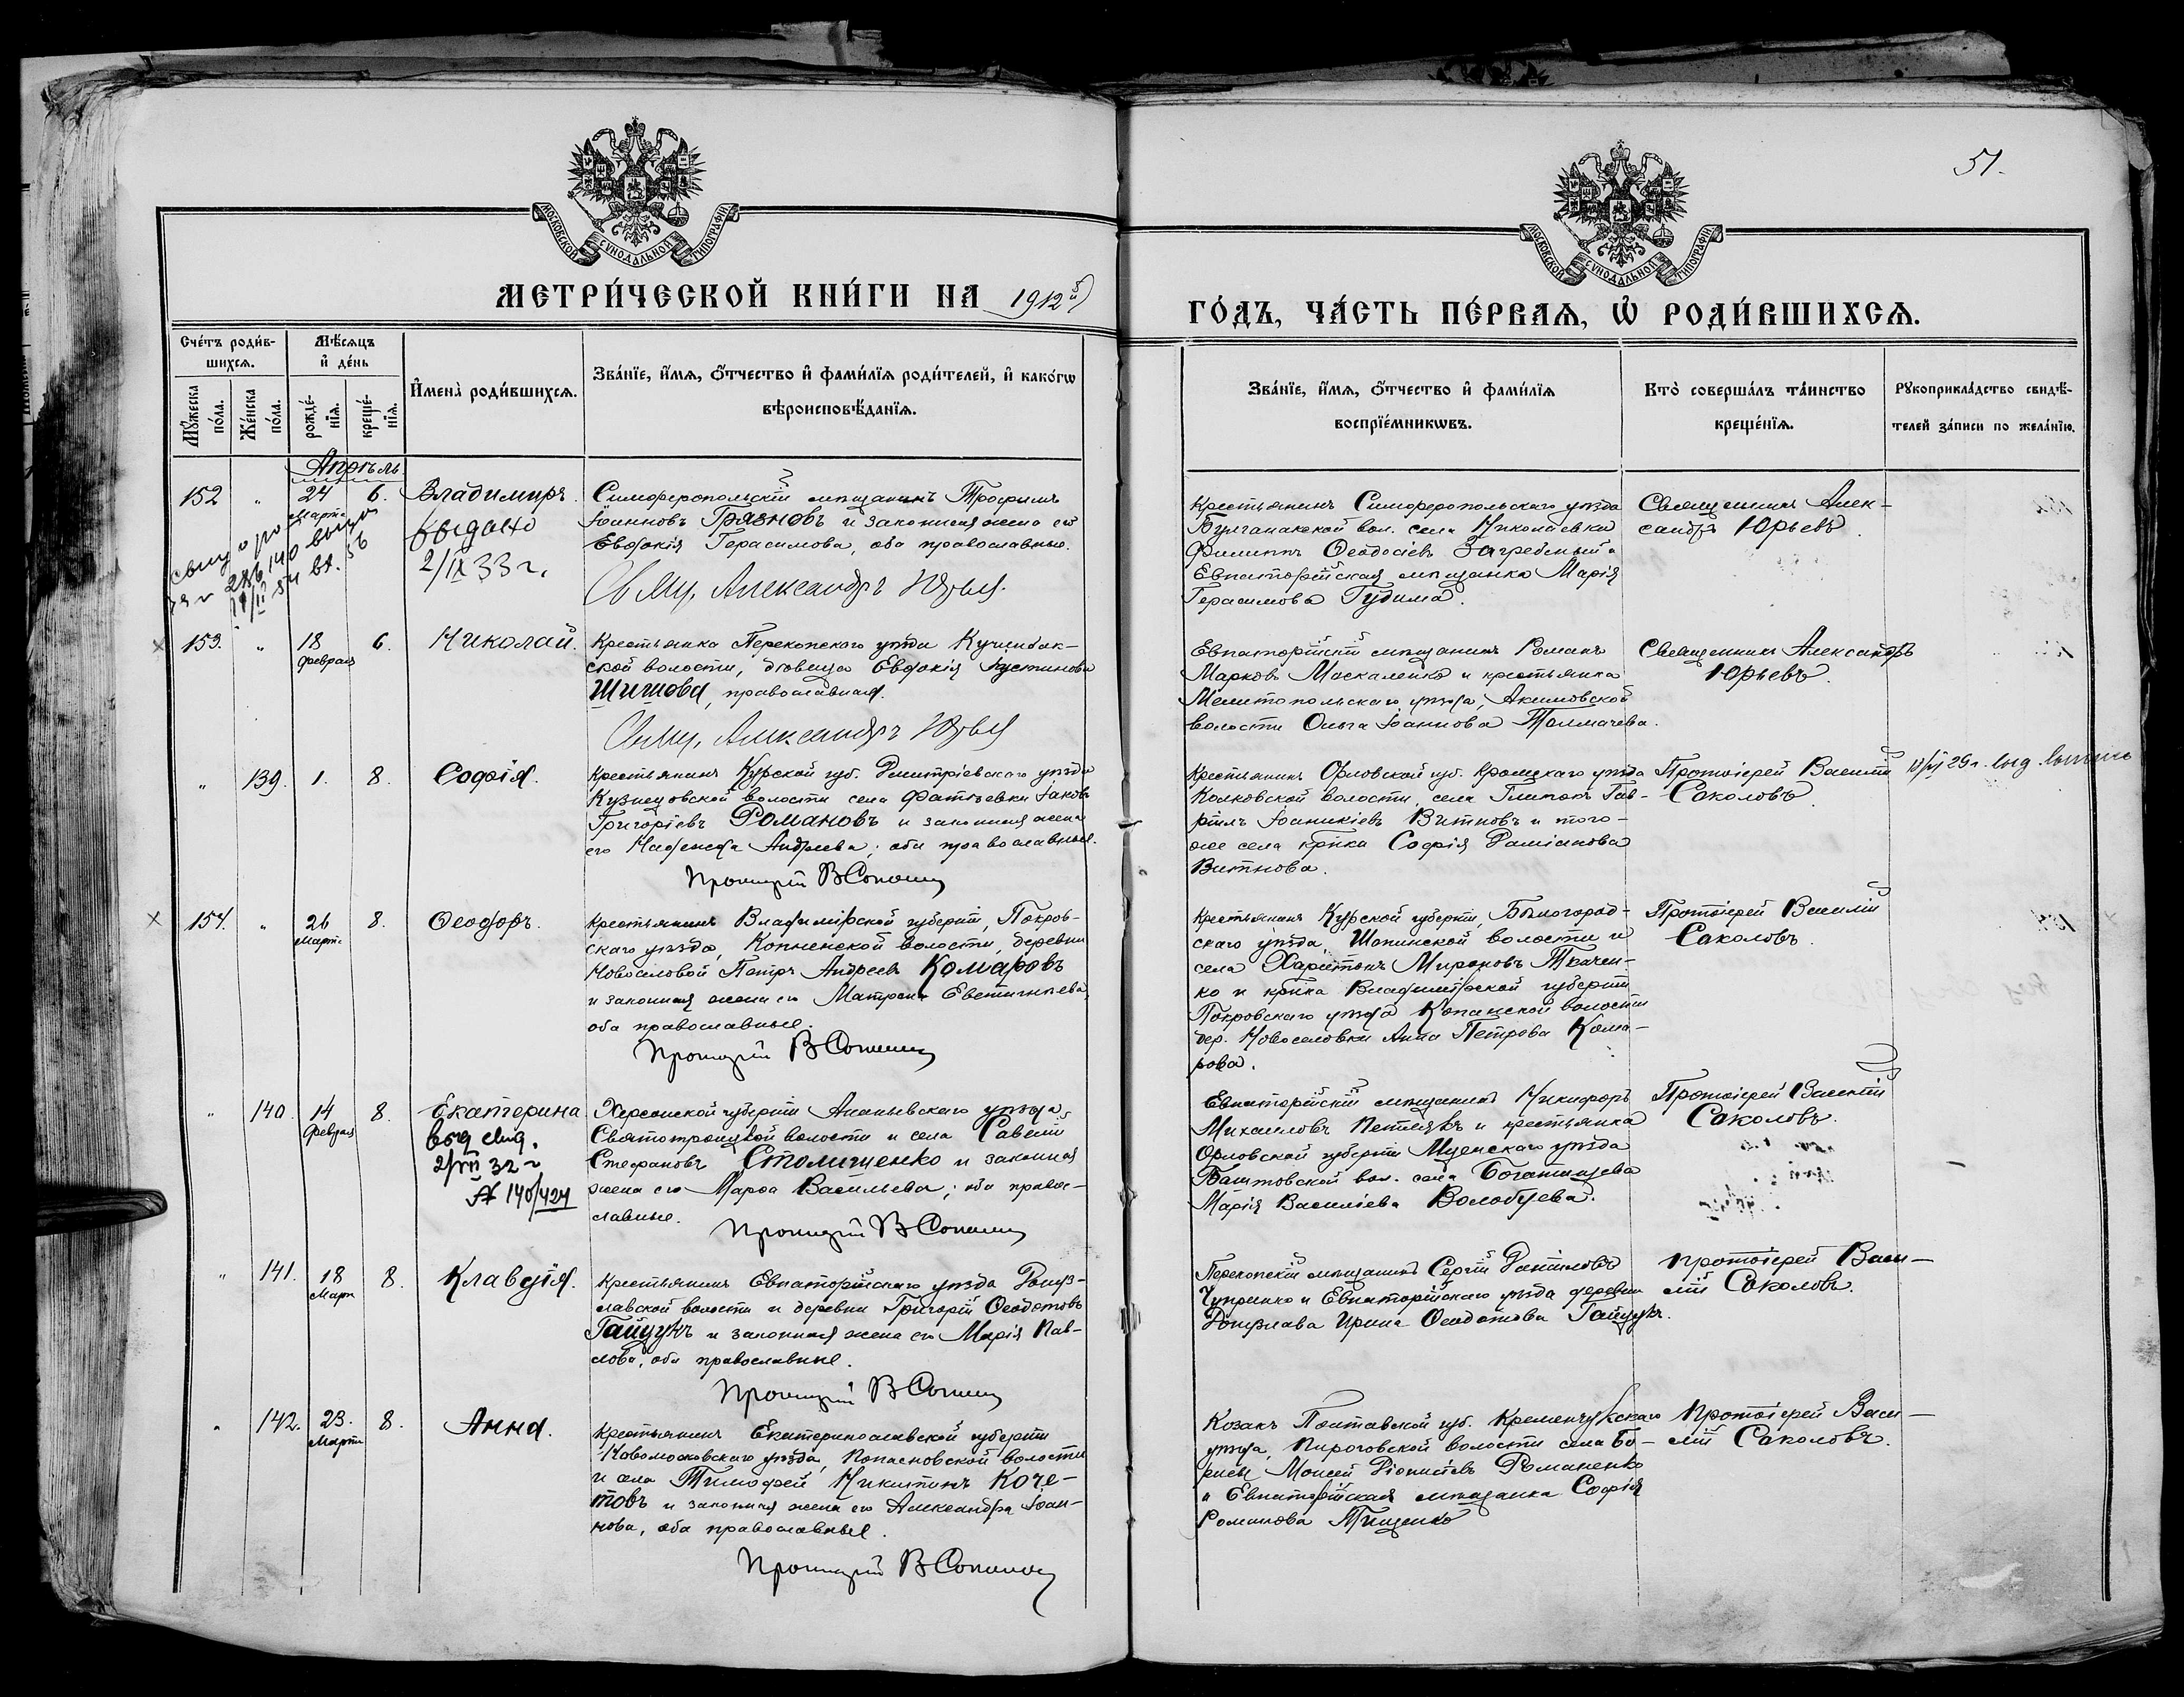 51.
МОСКОВСКОЙ СѴНОДАЛЬНОЙ ТИПОГРАФІИ
МОСКОВСКОЙ СѴНОДАЛЬНОЙ ТИПОГРАФІИ
МЕТРИ́ЧЕСКОЙ КНИ́ГИ НА 1912й
ГО́ДЪ, ЧА́СТЬ ПЕ́РВАЯ, Ѡ҆ РОДИ́ВШИХСЯ.
Сче́тъ роди́в-
шихся.
Мѣ́сяцъ
и҆ де́нь
Мꙋ́жеска
по́ла.
Же́нска
по́ла.
рожде́-
нїя.
креще́-
нїя.
И҆мена̀ роди́вшихся.
Зва́нїе, и҆́мя, ѻ҆́тчество и҆ фами́лїя роди́телей, и҆ како́гѡ
вѣроисповѣ́данїя.
Зва́нїе, и҆́мя, ѻ҆́тчество и҆ фами́лїя
воспрїе́мникѡвъ.
Кто̀ соверша́лъ та́инство
креще́нїя.
Рꙋкоприкла́дство свидѣ́-
телей за́писи по жела́нїю.
Апрѣль
152 " 24 6. Владимиръ.
Марта
выдано
2/IX 33 г.
Симферопольскій мѣщанинъ Трофимъ
Іоанновъ Грязновъ и законная жена его
Евдокія Герасимова, оба православные.
Свящ. Александръ Юрьев
Крестьянинъ Симферопольскаго уѣзда
Булганакской вол. села Николаевки
Филиппъ Ѳеодосіевъ Загребельный и
Евпаторійская мѣщанка Марія
Герасимова Гудима.
Священникъ Алек-
сандръ Юрьевъ.
153. " 18 6. Николай.
Февраля
Крестьянка Перекопскаго уѣзда
ской волости, дѣвица Евдокія Іустинова
Шишова, православная.
Свящ. Александръ Юрьев
Евпаторійскій мѣщанинъ Романъ
Марковъ Москаленко и крестьянка
Мелитопольскаго уѣзда, Акимовской
волости Ольга Іоаннова Толмачева.
Священникъ Александръ
Юрьевъ.
" 139. 1. 8. Софія.
Крестьянинъ Курской губ. Дмитріевскаго уѣзда
Кузнецовской волости села Фатѣевки Іаковъ
Григоріевъ Романовъ и законная жена
его Надежда Андреева; оба православные.
Протоіерей В Соколов
Крестьянинъ Орловской губ. Кромскаго уѣзда
Колковской волости, села Глинокъ Гав-
ріилъ Іоанникіевъ Витновъ и того-
же села кр-ка Софія Даміанова
Витнова.
Протоіерей Василій
Соколовъ.
154. " 26 8. Ѳеодоръ.
Марта
Крестьянинъ Владимірской губерніи, Покров-
скаго уѣзда, Копнинской волости, деревни
Новоселовой Петръ Андреевъ Комаровъ
и законная жена его Матрона Евстигнѣева,
оба православные.
Протоіерей В Соколов
Крестьянинъ Курской губерніи, Бѣлогород-
скаго уѣзда, Шопинской волости и
села Харитонъ Мироновъ Ткачен-
ко и кр-ка Владимірской губерніи
Покровскаго уѣзда Копнинской волости
дер. Новоселовки Анна Петрова Кома-
рова.
Протоіерей Василій
Соколовъ.
" 140. 14 8. Екатерина
Февраля
выд свид.
2/VII 32 г
№ 140/424
Херсонской губерніи Ананьевскаго уѣзда,
Святотроицкой волости и села Савелій
Стефановъ Столитченко и законная
жена его Марѳа Васильева; оба право-
славные.
Протоіерей В Соколов
Евпаторійскій мѣщанинъ Никифоръ
Михаиловъ Петлякъ и крестьянка
Орловской губерніи Мценскаго уѣзда
вол. села Богатищева
Марія Василіева Волобуева.
Протоіерей Василій
Соколовъ.
" 141. 18 8. Клавдія.
Марта
Крестьянинъ Евпаторійскаго уѣзда Донуз-
лавской волости и деревни Григорій Ѳеодотовъ
Гайдукъ и законная жена его Марія Пав-
лова, оба православные.
Протоіерей В Соколов
Перекопскій мѣщанинъ Сергій Даніиловъ
Чупринко и Евпаторійскаго уѣзда деревни
Донузлава Ирина Ѳеодотова Гайдукъ.
Протоіерей Васи-
лій Соколовъ.
" 142. 23. 8. Анна.
Марта
Крестьянинъ Екатеринославской губерніи
Новомосковскаго уѣзда, Попасновской волости
и села Тимофей Никитинъ Коче-
товъ и законная жена его Александра Іоан-
нова, оба православные.
Протоіерей В Соколов
Козакъ Полтавской губ. Кременчукскаго
уѣзда, Пироговской волости села Бо-
рисы Моисей Діонисіевъ Романенко
и Евпаторійская мѣщанка Софія
Романова Тищенко
Протоіерей Васи-
лій Соколовъ.